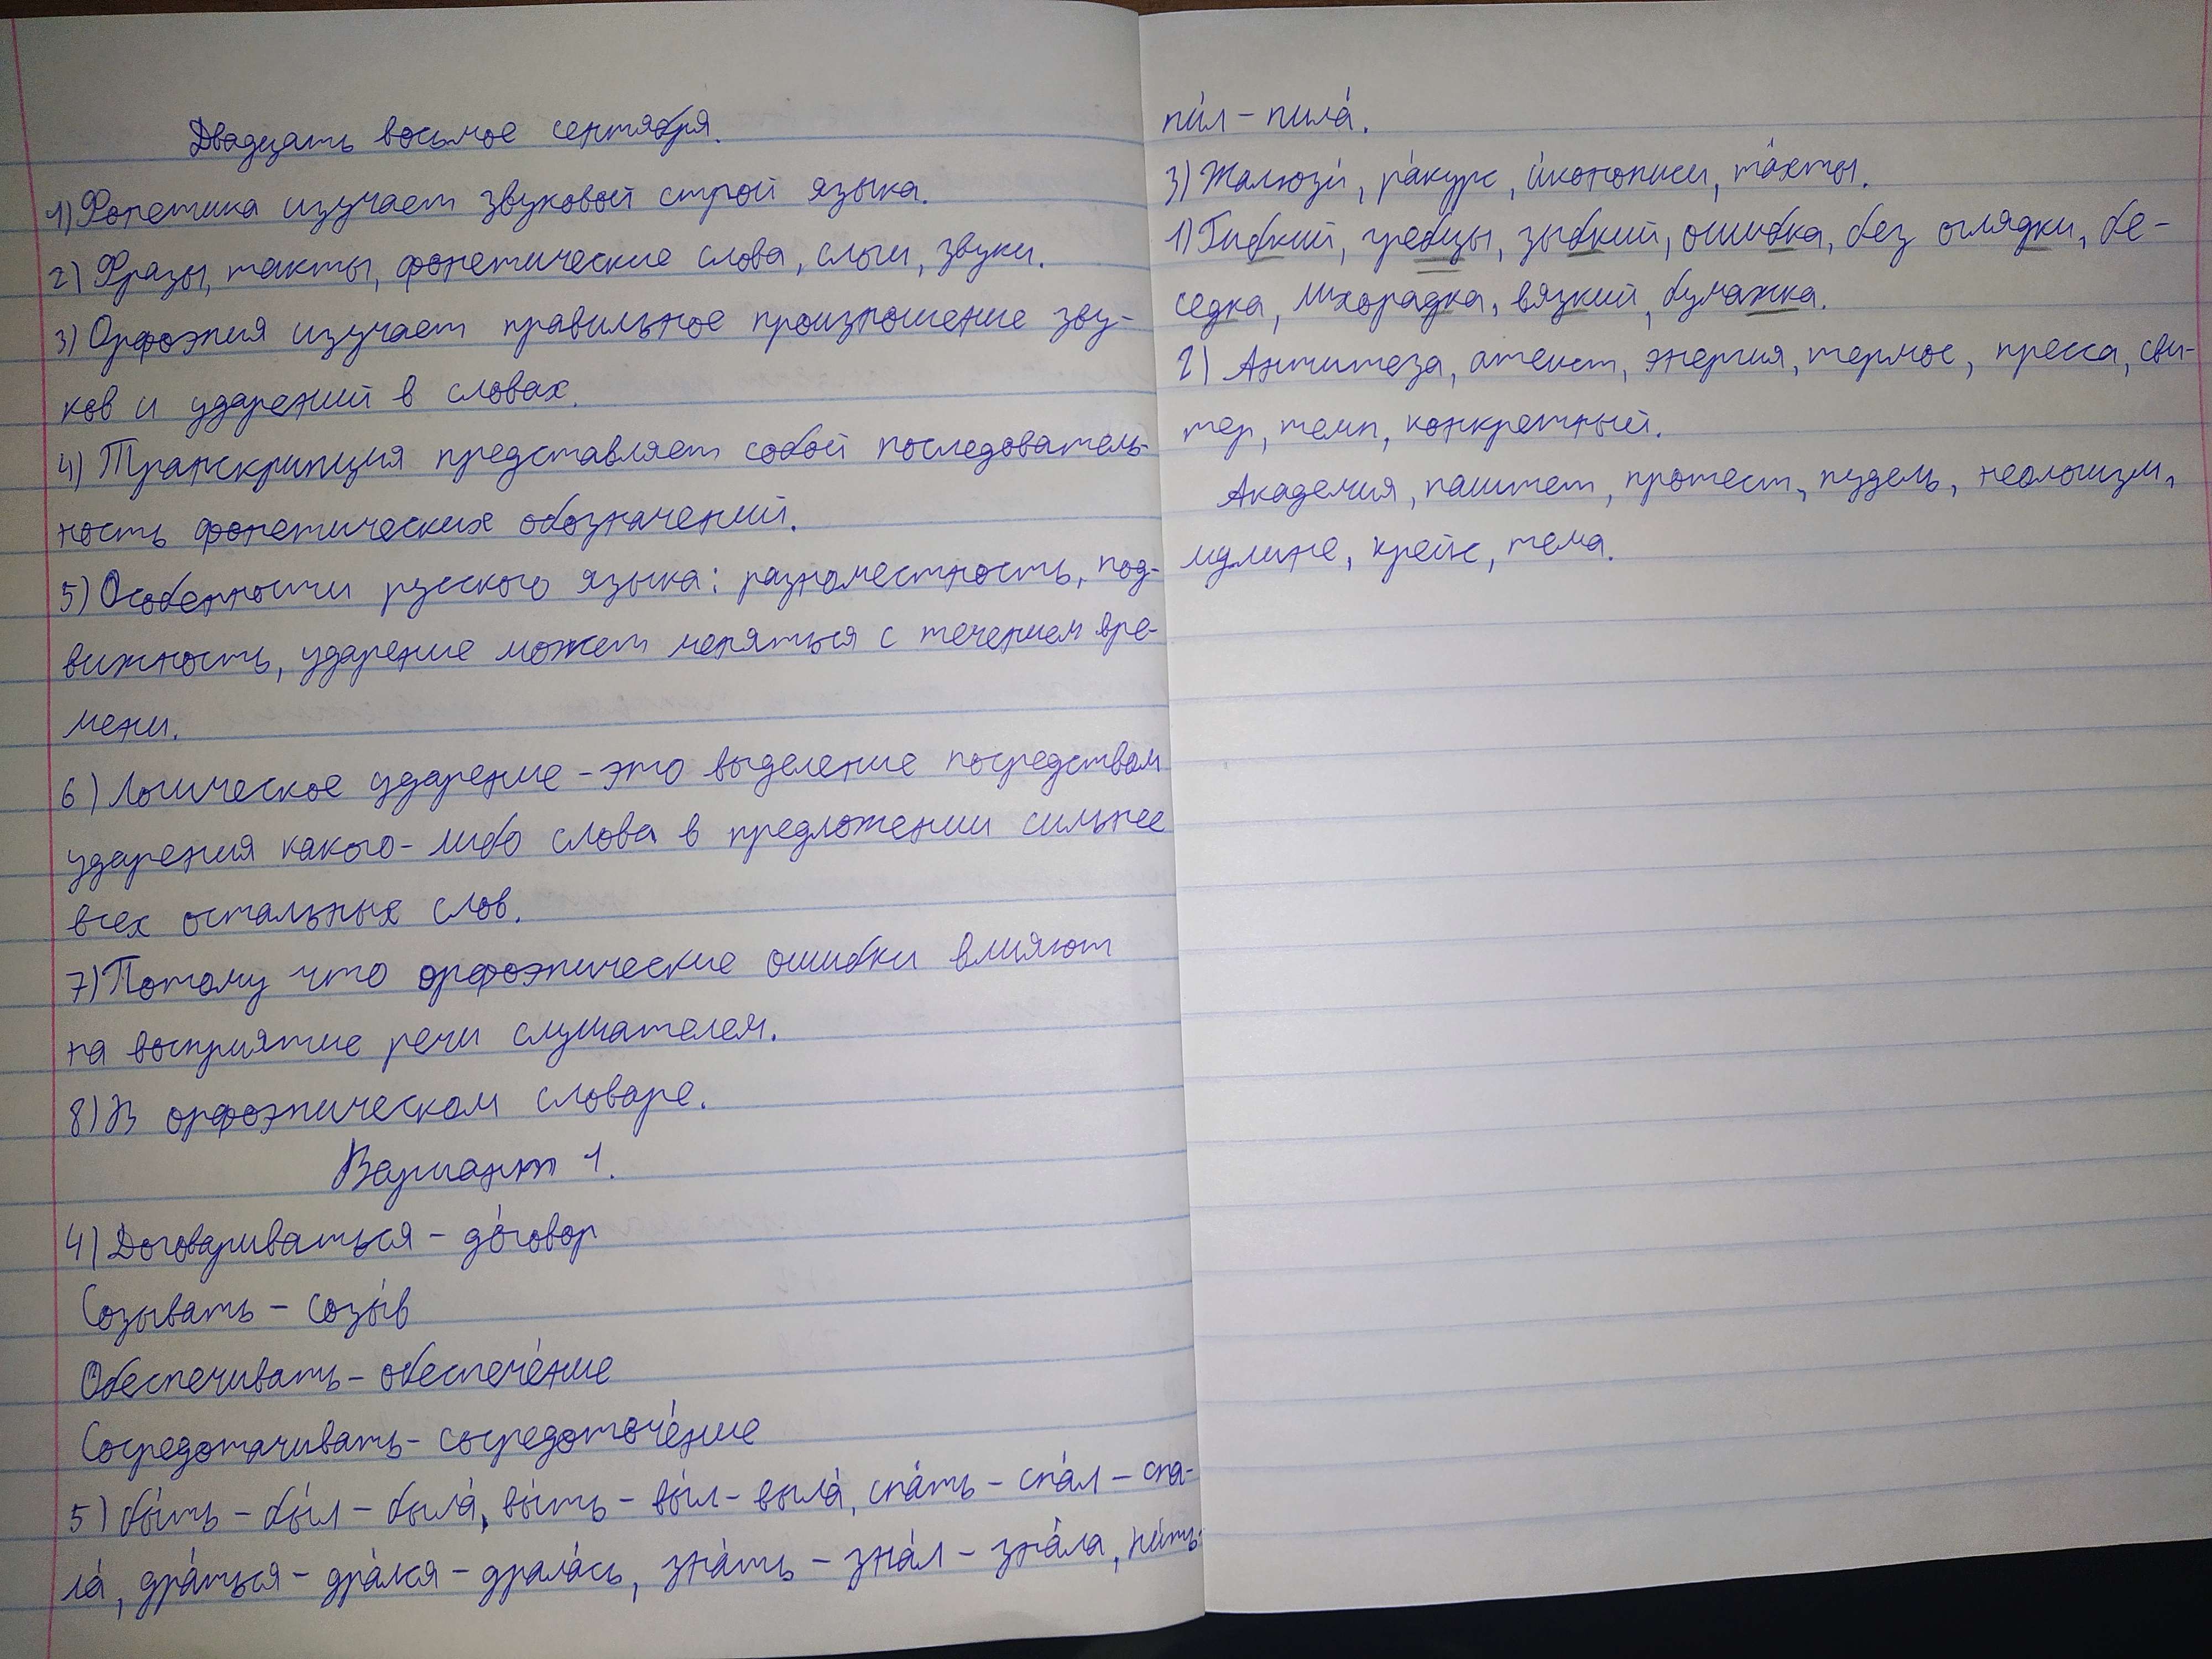 Двадцать восьмое сентября.
1) Фонетика изучает звуковой строй языка.
2) Фразы, такты, фонетические слова, слоги, звуки.
3) Орфоэпия изучает правильное произношение зву-
ков и ударений в словах.
4) Транскрипция представляет собой последователь-
ность фонетических обозначений.
5) Особенности русского языка: разноместность, под-
вижность, ударение может меняться с течением вре-
мени.
6) Логическое ударение - это выделение посредством
ударения какого-либо слова в предложении сильнее
всех остальных слов.
7) Потому что орфоэпические ошибки влияют
на восприятие речи слушателем.
8) В орфоэпическом словаре.
Вариант 1.
4) Договариваться - до́говор
Созывать - созы́в
Обеспечивать - обеспече́ние
Сосредотачивать - сосредоточе́ние
5) бы́ть - бы́л - была́, вы́ть - вы́л - выла́, спа́ть - спа́л - спа-
ла́, дра́ться - дра́лся - драла́сь, зна́ть - зна́л - зна́ла, пи́ть-
пи́л - пила́.
3) Жалюзи́, ра́курс, и́конописи, та́хты.
1) Гибкий, гребцы, зыбкий, ошибка, без оглядки, бе-
седка, лихорадка, вязкий, бумажка.
2) Антитеза, атеист, энергия, термос, пресса, сви-
тер, темп, конкретный.
Академия, паштет, протест, пудель, неологизм,
мулине, крейс, тема.